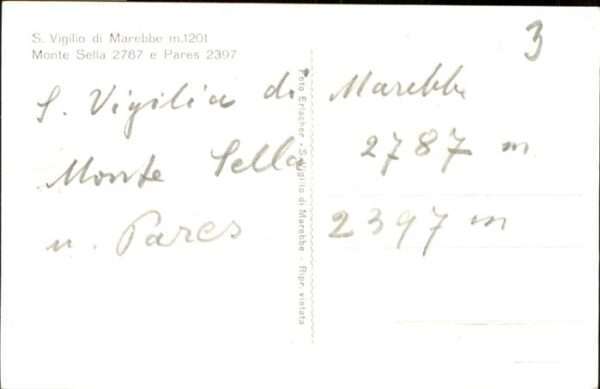 S. Vigilio di Marebbe m.1201
Monte Sella 2787 e Pares 2397
3
S. Vigilia di Marebbe
Monte Sella 2787 m
u. Pares 2397 m
Foto Erlacher - S. Vigilio di Marebbe - Ripr. vietata